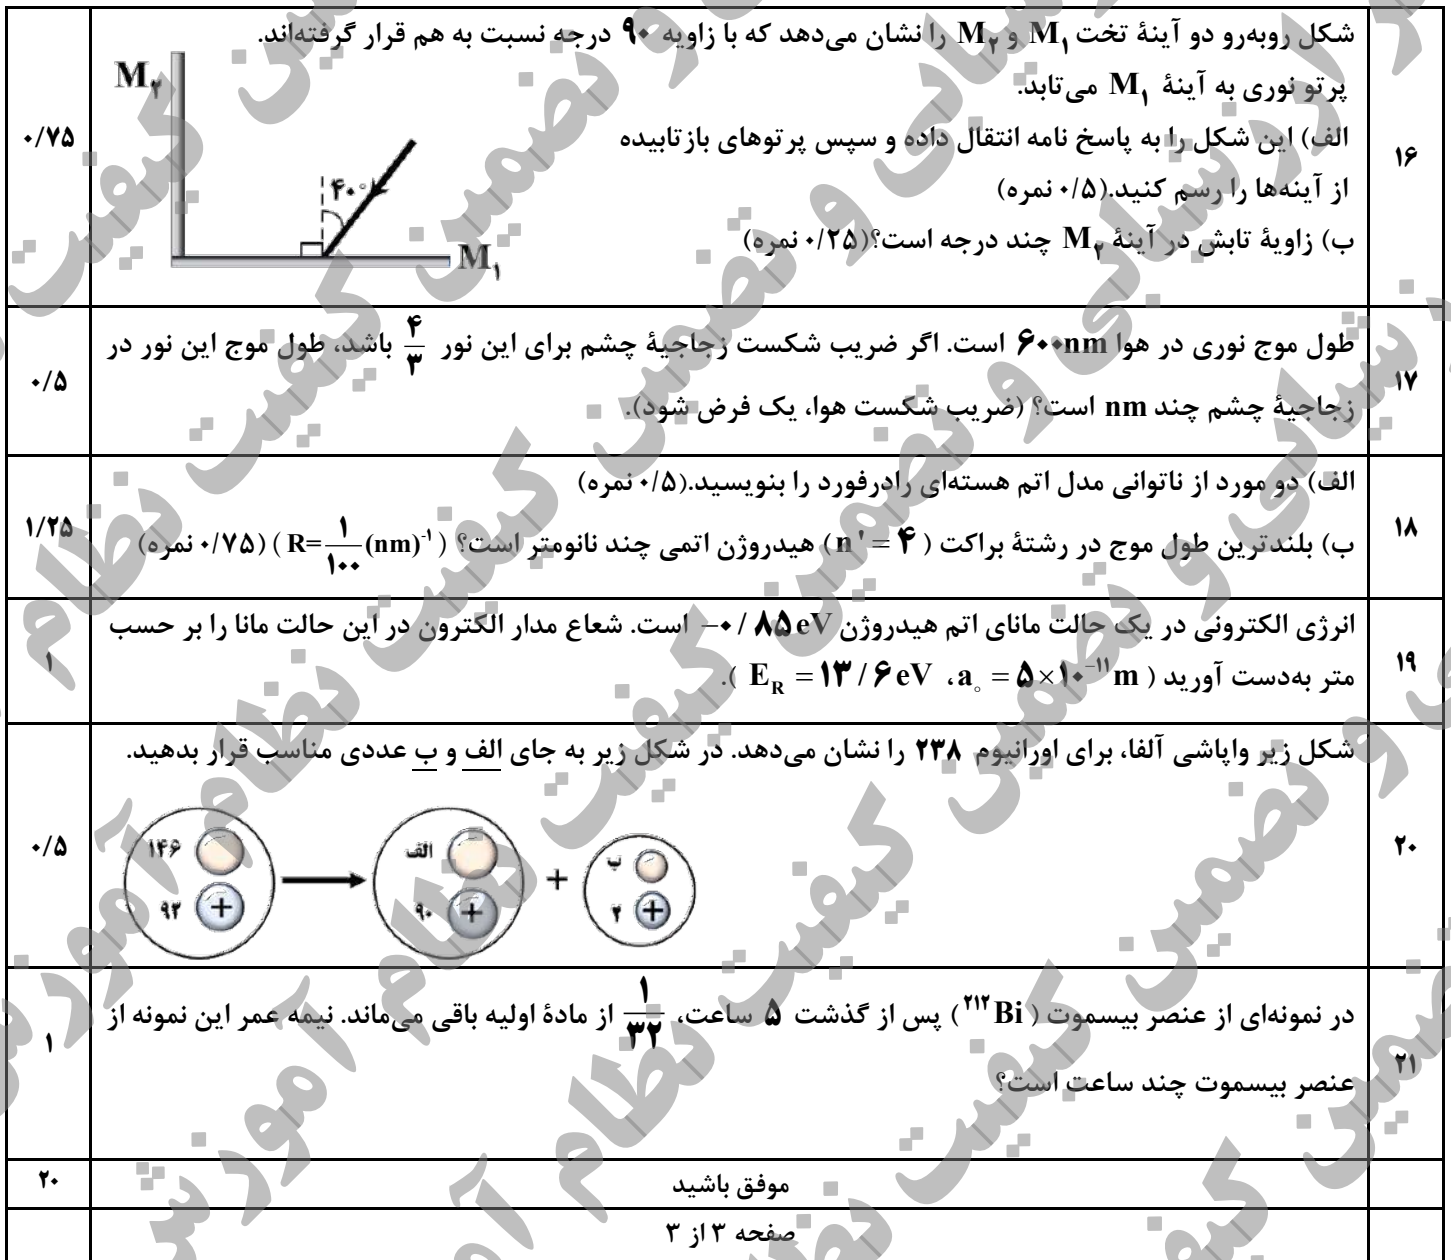 ۱۶
شکل روبه‌رو دو آینهٔ تخت M۱ و M۲ را نشان می‌دهد که با زاویه ۹۰ درجه نسبت به هم قرار گرفته‌اند.
پرتو نوری به آینهٔ M۱ می‌تابد.
الف) این شکل را به پاسخ نامه انتقال داده و سپس پرتوهای بازتابیده
از آینه‌ها را رسم کنید.(۰/۵ نمره)
ب) زاویهٔ تابش در آینهٔ M۲ چند درجه است؟(۰/۲۵ نمره)
M۲
۴۰°
M۱
۰/۷۵
۱۷
طول موج نوری در هوا ۶۰۰nm است. اگر ضریب شکست زجاجیهٔ چشم برای این نور ۴/۳ باشد، طول موج این نور در
زجاجیهٔ چشم چند nm است؟ (ضریب شکست هوا، یک فرض شود).
۰/۵
۱۸
الف) دو مورد از ناتوانی مدل اتم هسته‌ای رادرفورد را بنویسید.(۰/۵ نمره)
ب) بلندترین طول موج در رشتهٔ براکت (n' = ۴) هیدروژن اتمی چند نانومتر است؟ (R=۱/۱۰۰(nm)⁻¹) (۰/۷۵ نمره)
۱/۲۵
۱۹
انرژی الکترونی در یک حالت مانای اتم هیدروژن −۰/۸۵eV است. شعاع مدار الکترون در این حالت مانا را بر حسب
متر به‌دست آورید (a۰ = ۵×۱۰⁻¹¹ m ، E_R = ۱۳/۶eV).
۱
۲۰
شکل زیر واپاشی آلفا، برای اورانیوم ۲۳۸ را نشان می‌دهد. در شکل زیر به جای الف و ب عددی مناسب قرار بدهید.
۱۴۶
الف
ب
+
۹۲ +
۹۰ +
۲ +
۰/۵
۲۱
در نمونه‌ای از عنصر بیسموت (²¹²Bi) پس از گذشت ۵ ساعت، ۱/۳۲ از مادهٔ اولیه باقی می‌ماند. نیمه عمر این نمونه از
عنصر بیسموت چند ساعت است؟
۱
موفق باشید
۲۰
صفحه ۳ از ۳